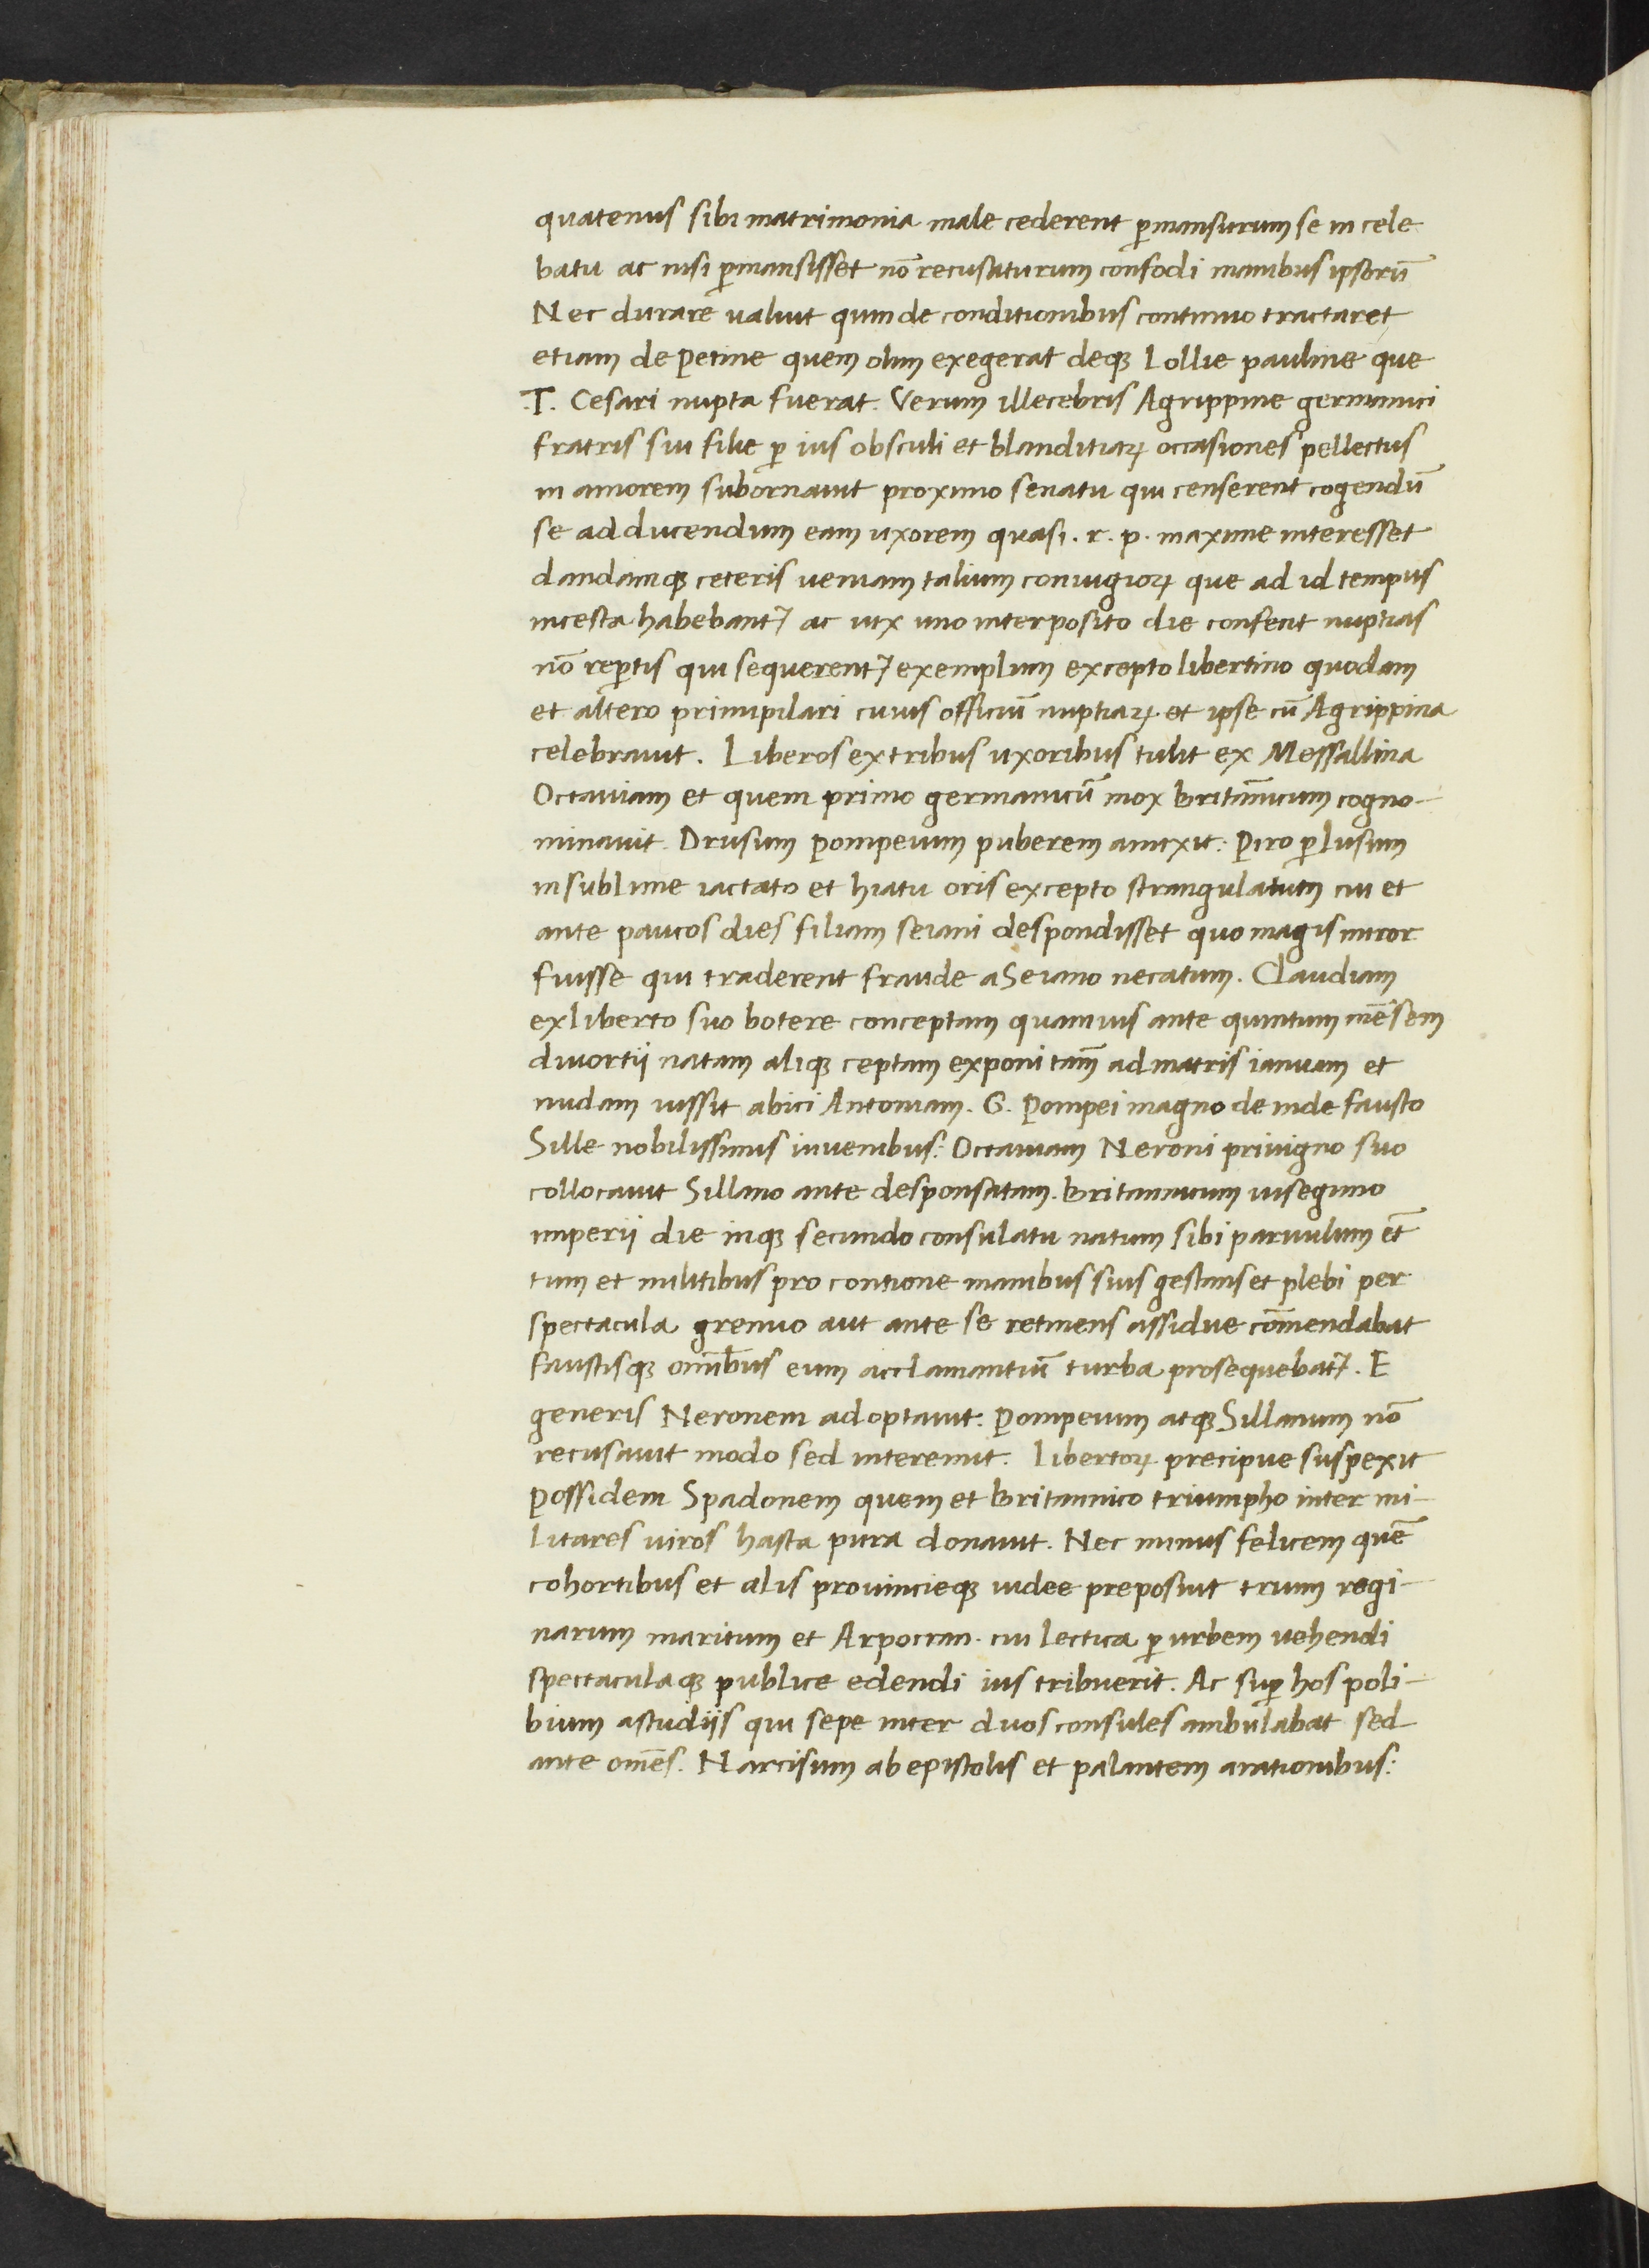 quatenus sibi matrimonia male cederent ꝑmansurum se in cele
batu ac nisi ꝑmansisset nō recusaturum confodi manibus ipsorū
Nec durare ualuit quin de conditionibus continuo tractaret
etiam de Petine quem olim exegerat deqꝫ Lollie pauline que
.T. Cesari nupta fuerat. Verum illecebris Agrippine germanici
fratris sui filie ꝑ ius obsculi et blanditiaꝝ occasiones pellectus
in amorem subornauit proximo senatu qui censerent cogendū
se ad ducendum eam uxorem quasi . r. p. maxime interesset
dandamqꝫ ceteris ueniam talium coniugioꝝ que ad id tempus
incesta habebant᷑ ac uix uno interposito die confecit nuptias
nō reꝑtis qui sequerent᷑ exemplum excepto libertino quodam
et altero primipilari cuius officiū nuptiaꝝ et ipse cū Agrippina
celebrauit. Liberos ex tribus uxoribus tulit ex Messallina
Octauiam et quem primo germanicū mox Britānicum cogno-
minauit. Drusum Pompeium puberem amixit: Piro ꝑ lusum
in sublime iactato et hiatu oris excepto strangulatum cui et
ante paucos dies filiam seiani despondisset quo magis miror
fuisse qui traderent fraude a Seiano necatum. Claudiam
ex liberto suo botere conceptam quamuis ante quintum mēsem
diuortij natam aliqꝫ ceptam exponi tam̄ ad matris ianuam et
nudam iussit abici Antoniam. G. Pompei magno deinde fausto
Sille nobilissimis iuuenibus: Octauiam Neroni priuigno suo
collocauit Sillano ante desponsatam. Britannicum uisegimo
imperij die inqꝫ secundo consulatu natum sibi paruulum et̄
tum et militibus pro contione manibus suis gestans et plebi per
spectacula gremio aut ante se retinens assidue cōmendabat
faustisqꝫ omībus eum acclamantiū turba prosequebat᷑. E
generis Neronem adoptauit: Pompeium atqꝫ Sillanum nō
recusauit modo sed interemit. Libertoꝝ precipue suspexit
Possidem Spadonem quem et Britannico triumpho inter mi-
litares uiros hasta pura donauit. Nec minus felicem quē
cohortibus et alis prouincieqꝫ iudee preposuit trium regi-
narum maritum et Arpocran. cui lectica ꝑ urbem uehendi
spectaculaqꝫ publice edendi ius tribuerit. Ac suꝑ hos poli-
bium a studijs qui sepe inter duos consules ambulabat sed
ante om̄es. Narcisum ab epistolis et palantem a rationibus: